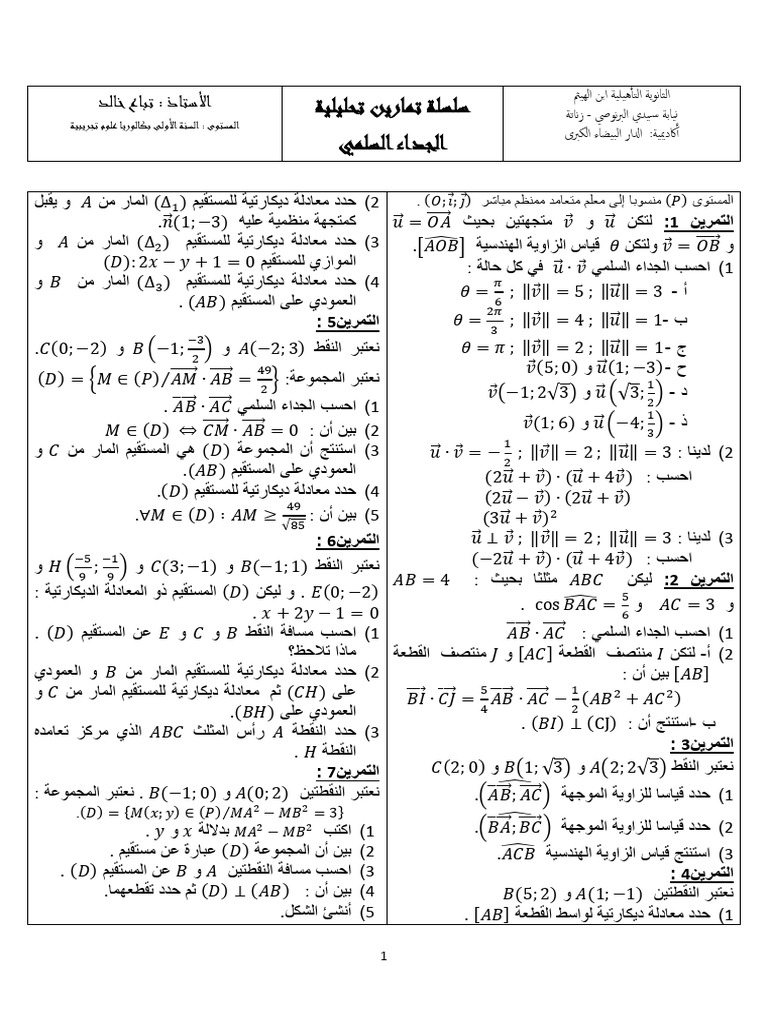 الثانوية التأهيلية ابن الهيثم
نيابة سيدي البرنوصي - زناتة
أكاديمية: الدار البيضاء الكبرى
سلسلة تمارين تحليلية
الجداء السلمي
الأستاذ : تباع خالد
المستوى : السنة الأولى بكالوريا علوم تجريبية
المستوى (P) منسوبا إلى معلم متعامد ممنظم مباشر (O; i⃗; j⃗) .
التمرين 1: لتكن u⃗ و v⃗ متجهتين بحيث u⃗ = OA⃗
و v⃗ = OB⃗ ولتكن θ قياس الزاوية الهندسية [AOB̂].
1) احسب الجداء السلمي u⃗ · v⃗ في كل حالة :
أ - ‖u⃗‖ = 3 ; ‖v⃗‖ = 5 ; θ = π/6
ب - ‖u⃗‖ = 1 ; ‖v⃗‖ = 4 ; θ = 2π/3
ج - ‖u⃗‖ = 1 ; ‖v⃗‖ = 2 ; θ = π
ح - u⃗(1; −3) و v⃗(5; 0)
د - u⃗(√3; 1/2) و v⃗(−1; 2√3)
ذ - u⃗(−4; 1/3) و v⃗(1; 6)
2) لدينا : ‖u⃗‖ = 3 ; ‖v⃗‖ = 2 ; u⃗ · v⃗ = −1/2
احسب : (2u⃗ + v⃗) · (u⃗ + 4v⃗)
(2u⃗ − v⃗) · (2u⃗ + v⃗)
(3u⃗ + v⃗)²
3) لدينا : ‖u⃗‖ = 3 ; ‖v⃗‖ = 2 ; u⃗ ⊥ v⃗
احسب : (−2u⃗ + v⃗) · (u⃗ + 4v⃗)
التمرين 2: ليكن ABC مثلثا بحيث : AB = 4
و AC = 3 و cos BAĈ = 5/6 .
1) احسب الجداء السلمي : AB⃗ · AC⃗
2) أ- لتكن I منتصف القطعة [AC] و J منتصف القطعة
[AB] بين أن :
BI⃗ · CJ⃗ = 5/4 AB⃗ · AC⃗ − 1/2 (AB² + AC²)
ب -استنتج أن : (BI) ⊥ (CJ) .
التمرين3 :
نعتبر النقط A(2; 2√3) و B(1; √3) و C(2; 0)
1) حدد قياسا للزاوية الموجهة (AB⃗; AC⃗).
2) حدد قياسا للزاوية الموجهة (BA⃗; BC⃗).
3) استنتج قياس الزاوية الهندسية ACB̂.
التمرين4 :
نعتبر النقطتين A(1; −1) و B(5; 2)
1) حدد معادلة ديكارتية لواسط القطعة [AB] .
2) حدد معادلة ديكارتية للمستقيم (Δ₁) المار من A و يقبل
كمتجهة منظمية عليه n⃗(1; −3).
3) حدد معادلة ديكارتية للمستقيم (Δ₂) المار من A و
الموازي للمستقيم (D): 2x − y + 1 = 0
4) حدد معادلة ديكارتية للمستقيم (Δ₃) المار من B و
العمودي على المستقيم (AB) .
التمرين5 :
نعتبر النقط A(−2; 3) و B(−1; −3/2) و C(0; −2).
نعتبر المجموعة: (D) = {M ∈ (P)/AM⃗ · AB⃗ = 49/2}
1) احسب الجداء السلمي AB⃗ · AC⃗.
2) بين أن : M ∈ (D) ⇔ CM⃗ · AB⃗ = 0
3) استنتج أن المجموعة (D) هي المستقيم المار من C و
العمودي على المستقيم (AB).
4) حدد معادلة ديكارتية للمستقيم (D).
5) بين أن : ∀M ∈ (D) : AM ≥ 49/√85.
التمرين6 :
نعتبر النقط B(−1; 1) و C(3; −1) و H(−5/9; −1/9) و
E(0; −2) . و ليكن (D) المستقيم ذو المعادلة الديكارتية :
x + 2y − 1 = 0 .
1) احسب مسافة النقط B و C و E عن المستقيم (D) .
ماذا تلاحظ؟
2) حدد معادلة ديكارتية للمستقيم المار من B و العمودي
على (CH) ثم معادلة ديكارتية للمستقيم المار من C و
العمودي على (BH).
3) حدد النقطة A رأس المثلث ABC الذي مركز تعامده
النقطة H .
التمرين7 :
نعتبر النقطتين A(0; 2) و B(−1; 0) . نعتبر المجموعة :
(D) = {M(x; y) ∈ (P)/MA² − MB² = 3}.
1) اكتب MA² − MB² بدلالة x و y .
2) بين أن المجموعة (D) عبارة عن مستقيم .
3) احسب مسافة النقطتين A و B عن المستقيم (D) .
4) بين أن : (D) ⊥ (AB) ثم حدد تقطعهما.
5) أنشئ الشكل.
1